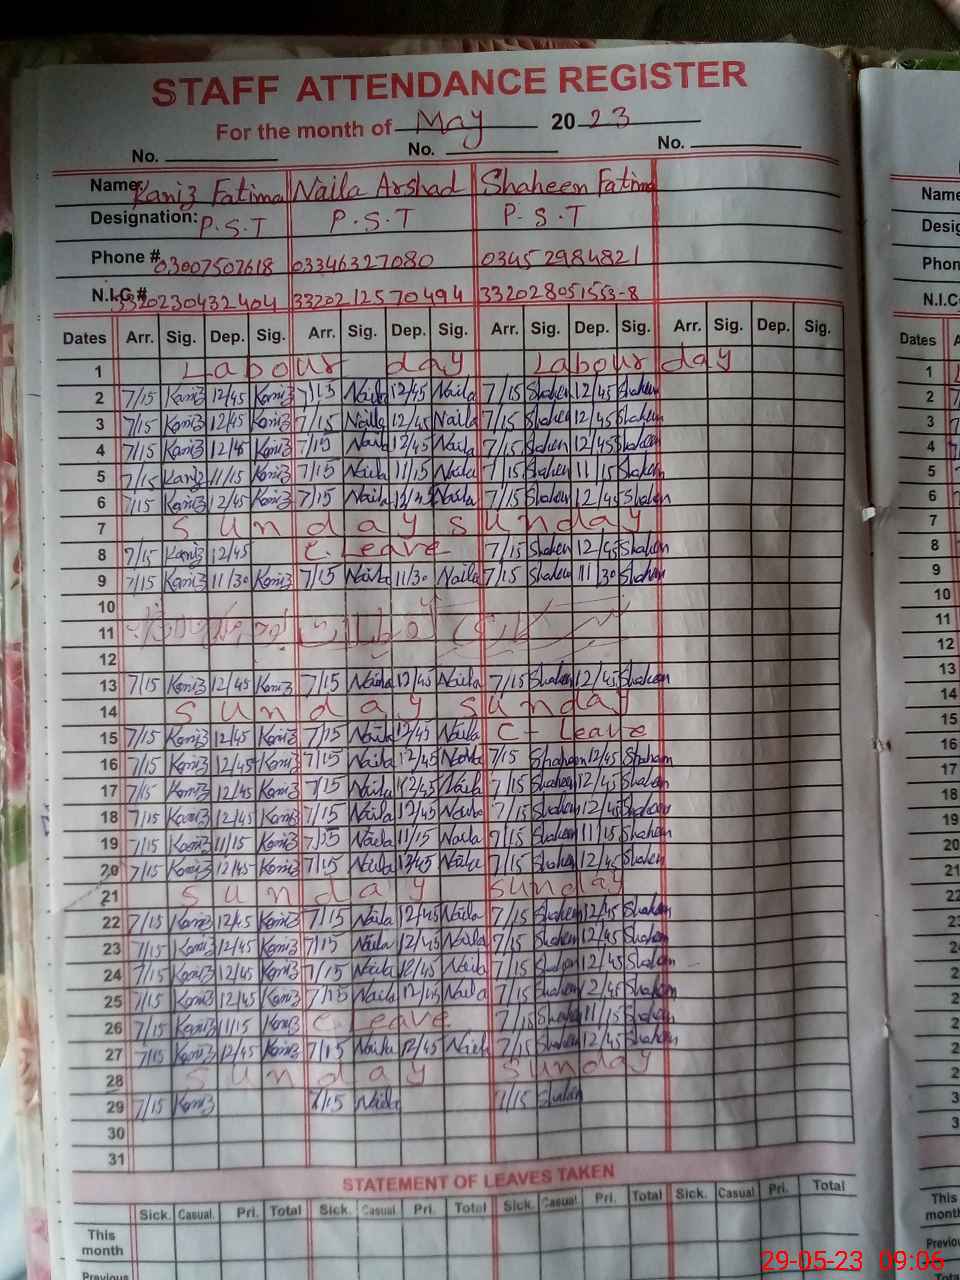 STAFF ATTENDANCE REGISTER
For the month of May 2023
No. No. No.
Name Kaniz Fatima Naila Arshad Shaheen Fatima Name
Designation: P.S.T P.S.T P.S.T
Phone # 03007507618 03346327080 03452984821 Phon
N.I.C # 3320230432404 3320212570494 332028051553-8 N.I.C
Dates Arr. Sig. Dep. Sig. Arr. Sig. Dep. Sig. Arr. Sig. Dep. Sig. Arr. Sig. Dep. Sig. Dates
1 Labour day Labour day 1
2 7/15 Kaniz 12/45 Kaniz 7/15 Naila 12/45 Naila 7/15 Shaheen 12/45 Shaheen 2
3 7/15 Kaniz 12/45 Kaniz 7/15 Naila 12/45 Naila 7/15 Shaheen 12/45 Shaheen 3
4 7/15 Kaniz 12/45 Kaniz 7/15 Naila 12/45 Naila 7/15 Shaheen 12/45 Shaheen 4
5 7/15 Kaniz 11/15 Kaniz 7/15 Naila 11/15 Naila 7/15 Shaheen 11/15 Shaheen 5
6 7/15 Kaniz 12/45 Kaniz 7/15 Naila Naila 7/15 Shaheen 12/45 Shaheen 6
7 Sunday Sunday 7
8 7/15 Kaniz 12/45 C. Leave 7/15 Shaheen 12/45 Shaheen 8
9 7/15 Kaniz 11/30 Kaniz 7/15 Naila 11/30 Naila 7/15 Shaheen 11/30 Shaheen 9
10 10
11 11
12 12
13 7/15 Kaniz 12/45 Kaniz 7/15 Naila 12/45 Naila 7/15 Shaheen 12/45 Shaheen 13
14 Sunday Sunday 14
15 7/15 Kaniz 12/45 Kaniz 7/15 Naila 12/45 Naila C- Leave 15
16 7/15 Kaniz 12/45 Kaniz 7/15 Naila 12/45 Naila 7/15 Shaheen 12/45 Shaheen 16
17 7/15 Kaniz 12/45 Kaniz 7/15 Naila 12/45 Naila 7/15 Shaheen 12/45 Shaheen 17
18 7/15 Kaniz 12/45 Kaniz 7/15 Naila 12/45 Naila 7/15 Shaheen 12/45 Shaheen 18
19 7/15 Kaniz 11/15 Kaniz 7/15 Naila 11/15 Naila 7/15 Shaheen 11/15 Shaheen 19
20 7/15 Kaniz 12/45 Kaniz 7/15 Naila 12/45 Naila 7/15 Shaheen 12/45 Shaheen 20
21 Sunday Sunday 21
22 7/15 Kaniz 12/45 Kaniz 7/15 Naila 12/45 Naila 7/15 Shaheen 12/45 Shaheen
23 7/15 Kaniz 12/45 Kaniz 7/15 Naila 12/45 Naila 7/15 Shaheen 12/45 Shaheen
24 7/15 Kaniz 12/45 Kaniz 7/15 Naila 12/45 Naila 7/15 Shaheen 12/45 Shaheen
25 7/15 Kaniz 12/45 Kaniz 7/15 Naila 12/45 Naila 7/15 Shaheen 12/45 Shaheen
26 7/15 Kaniz 11/15 Kaniz C. Leave 7/15 Shaheen 11/15 Shaheen
27 7/15 Kaniz 12/45 Kaniz 7/15 Naila 12/45 Naila 7/15 Shaheen 12/45 Shaheen
28 Sunday Sunday
29 7/15 Kaniz 7/15 Naila 7/15 Shaheen
30
31
STATEMENT OF LEAVES TAKEN
Sick. Casual. Pri. Total Sick. Casual. Pri. Total Sick. Casual. Pri. Total Sick. Casual Pri. Total
This month This month
Previous Previou
29-05-23 09:06